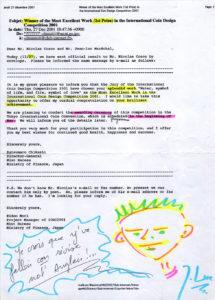 jeudi 27 décembre 2001
Winner of the Most Excellent Work (1st Prize) in the International Coin Design Competition 2001
Page: 1
Subject: Winner of the Most Excellent Work (1st Prize) in the International Coin Design
Competition 2001
Date: Thu, 27 Dec 2001
Dear Mr. Nicolas Cozon and Mr. Jean-luc Maréchal,
Today (12/27), we have sent official result to Mr. Nicolas Cozon by
envelope. Please be informed the same message by e-mail as follows:
It is my great pleasure to inform you that the Jury of the International
Coin Design Competition 2001 have chosen your splendid work "Water, symbol
of life, and COIN, symbol of time" as the Most Excellent Work in the
International Coin Design Competition 2001. I would like to take this
opportunity to offer my cordial congratulations on your brilliant
achievement.
We are planning to conduct the awarding ceremony of this competition in the
Tokyo International Coin Convention, which is scheduled in the beginning of
May. We will inform you of the details later.
Thank you very much for your participation in this competition, and I offer
you my best wishes for continued good health, happiness and success.
Sincerely yours,
Director-General
Mint Bureau
Ministry of Finance, Japan
P.S. We don't have Mr. Nicolas's e-mail or fax number. At present we can
contact him only by mail. So, please inform me of his e-mail address or fax
number if he has. I'm looking for your reply.
Sincerely yours,
Project Manager of ICDC2001
Mint Bureau
Ministry of Finance, Japan
Je crois que j'ai